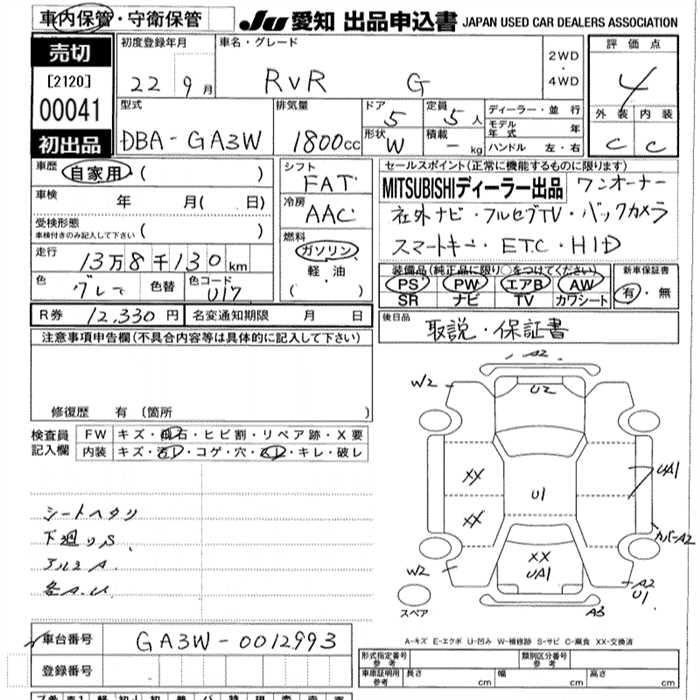 車内保管・守衛保管
JU 愛知 出品申込書 JAPAN USED CAR DEALERS ASSOCIATION
売切
[2120]
00041
初出品
初度登録年月
22 9月
車名・グレード
RVR G
2WD
・
4WD
評価点
4
外装 内装
C C
型式
DBA-GA3W
排気量
1800cc
ドア
5
形状
W
定員
5人
積載
- kg
ディーラー・並行
モデル年式 年
ハンドル 左・右
車歴
自家用 ( )
車検
年 月( 日)
受検形態
車検付きのみ記入して下さい ( )
走行
13万8千130km
色
グレー
色替
色コード
U17
シフト
FAT
冷房
AAC
燃料
ガソリン
軽・油
( )
セールスポイント(正常に機能するものに限ります)
MITSUBISHIディーラー出品 ワンオーナー
社外ナビ・フルセグTV・バックカメラ
スマートキー・ETC・HID
装備品(純正品に限り○をつけてください)
PS PW エアB AW
SR ナビ TV カワシート
新車保証書
有・無
R券 12,330円
名変通知期限 月 日
後日品
取説・保証書
注意事項申告欄(不具合内容等は具体的に記入して下さい)
修復歴 有 (箇所 )
検査員
記入欄
FW キズ・飛石・ヒビ割・リペア跡・X要
内装 キズ・汚レ・コゲ・穴・スレ・キレ・破レ
シートヘタリ
下廻りS.
アルミA.
各A.U.
A2
W2
U2
XX
XX
U1
UA1
カバーA2
XX
UA1
W2
A2
U1
A3
スペア
A-キズ E-エクボ U-凹み W-補修跡 S-サビ C-腐食 XX-交換済
車台番号
GA3W-0012993
登録番号
形式指定番号
参考
類別区分番号
参考
車庫証明用
参考
長さ cm
幅 cm
高さ cm